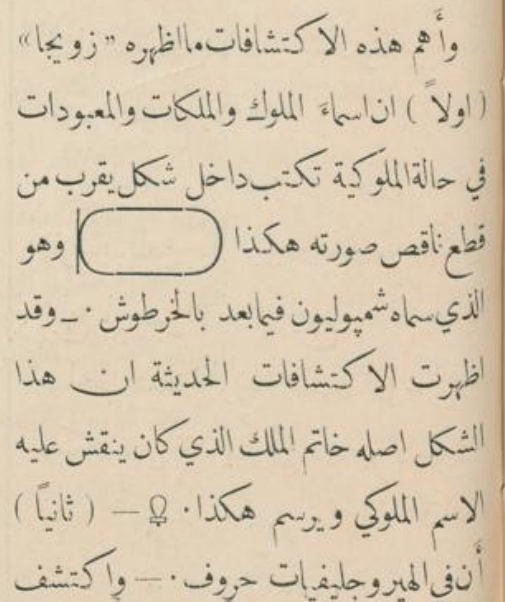 وأَهم هذه الاكتشافات ما اظهره «زويجا»
(اولاً) ان اسماءَ الملوك والملكات والمعبودات
في حالة الملوكية تكتب داخل شكل يقرب من
قطع ناقص صورته هكذا وهو
الذي سماه شمپوليون فيما بعد بالخرطوش ٠ – وقد
اظهرت الاكتشافات الحديثة ان هذا
الشكل اصله خاتم الملك الذي كان ينقش عليه
الاسم الملوكي ويرسم هكذا ٠ – (ثانياً)
أَن في الهيروجليفيات حروف ٠ – واكتشف